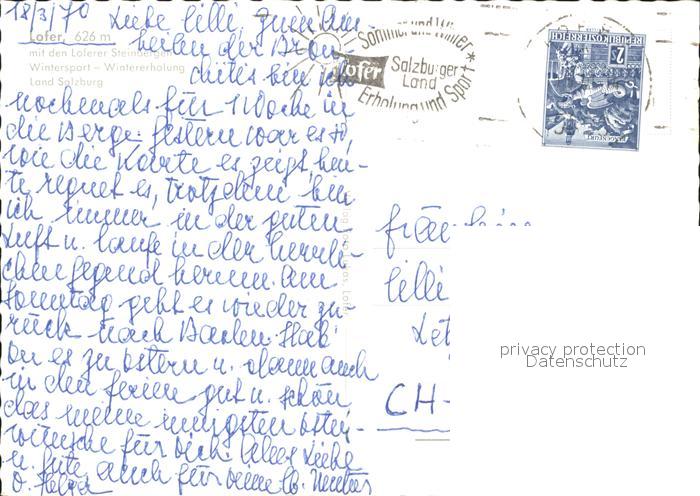 18/3/70 Liebe Lilli, zum Aus-
heilen der Bron-
chites bin ich
nochmals für 1 Woche in
die Berge. Gestern war es so,
wie die Karte es zeigt heu-
te regnet es, trotzdem bin
ich immer in der guten
Luft u. laufe in der herrli-
chen Gegend herum. Am
Sonntag geht es wieder zu
rück nach Baden. Hab
du es zu Ostern u. dann auch
in den Ferien gut u. schön
das meine innigsten Oster-
wünsche für Dich. Alles Liebe
u. Gute auch für Deine lb. Mutter
D. Helga
Lofer, 626 m
mit den Loferer Steinbergen
Wintersport – Wintererholung
Land Salzburg
Sommer und Winter
Lofer
Salzburger
Land
Erholung und Sport
REPUBLIK ÖSTERREICH
2
Fräulein
Lilli
CH-
privacy protection
Datenschutz